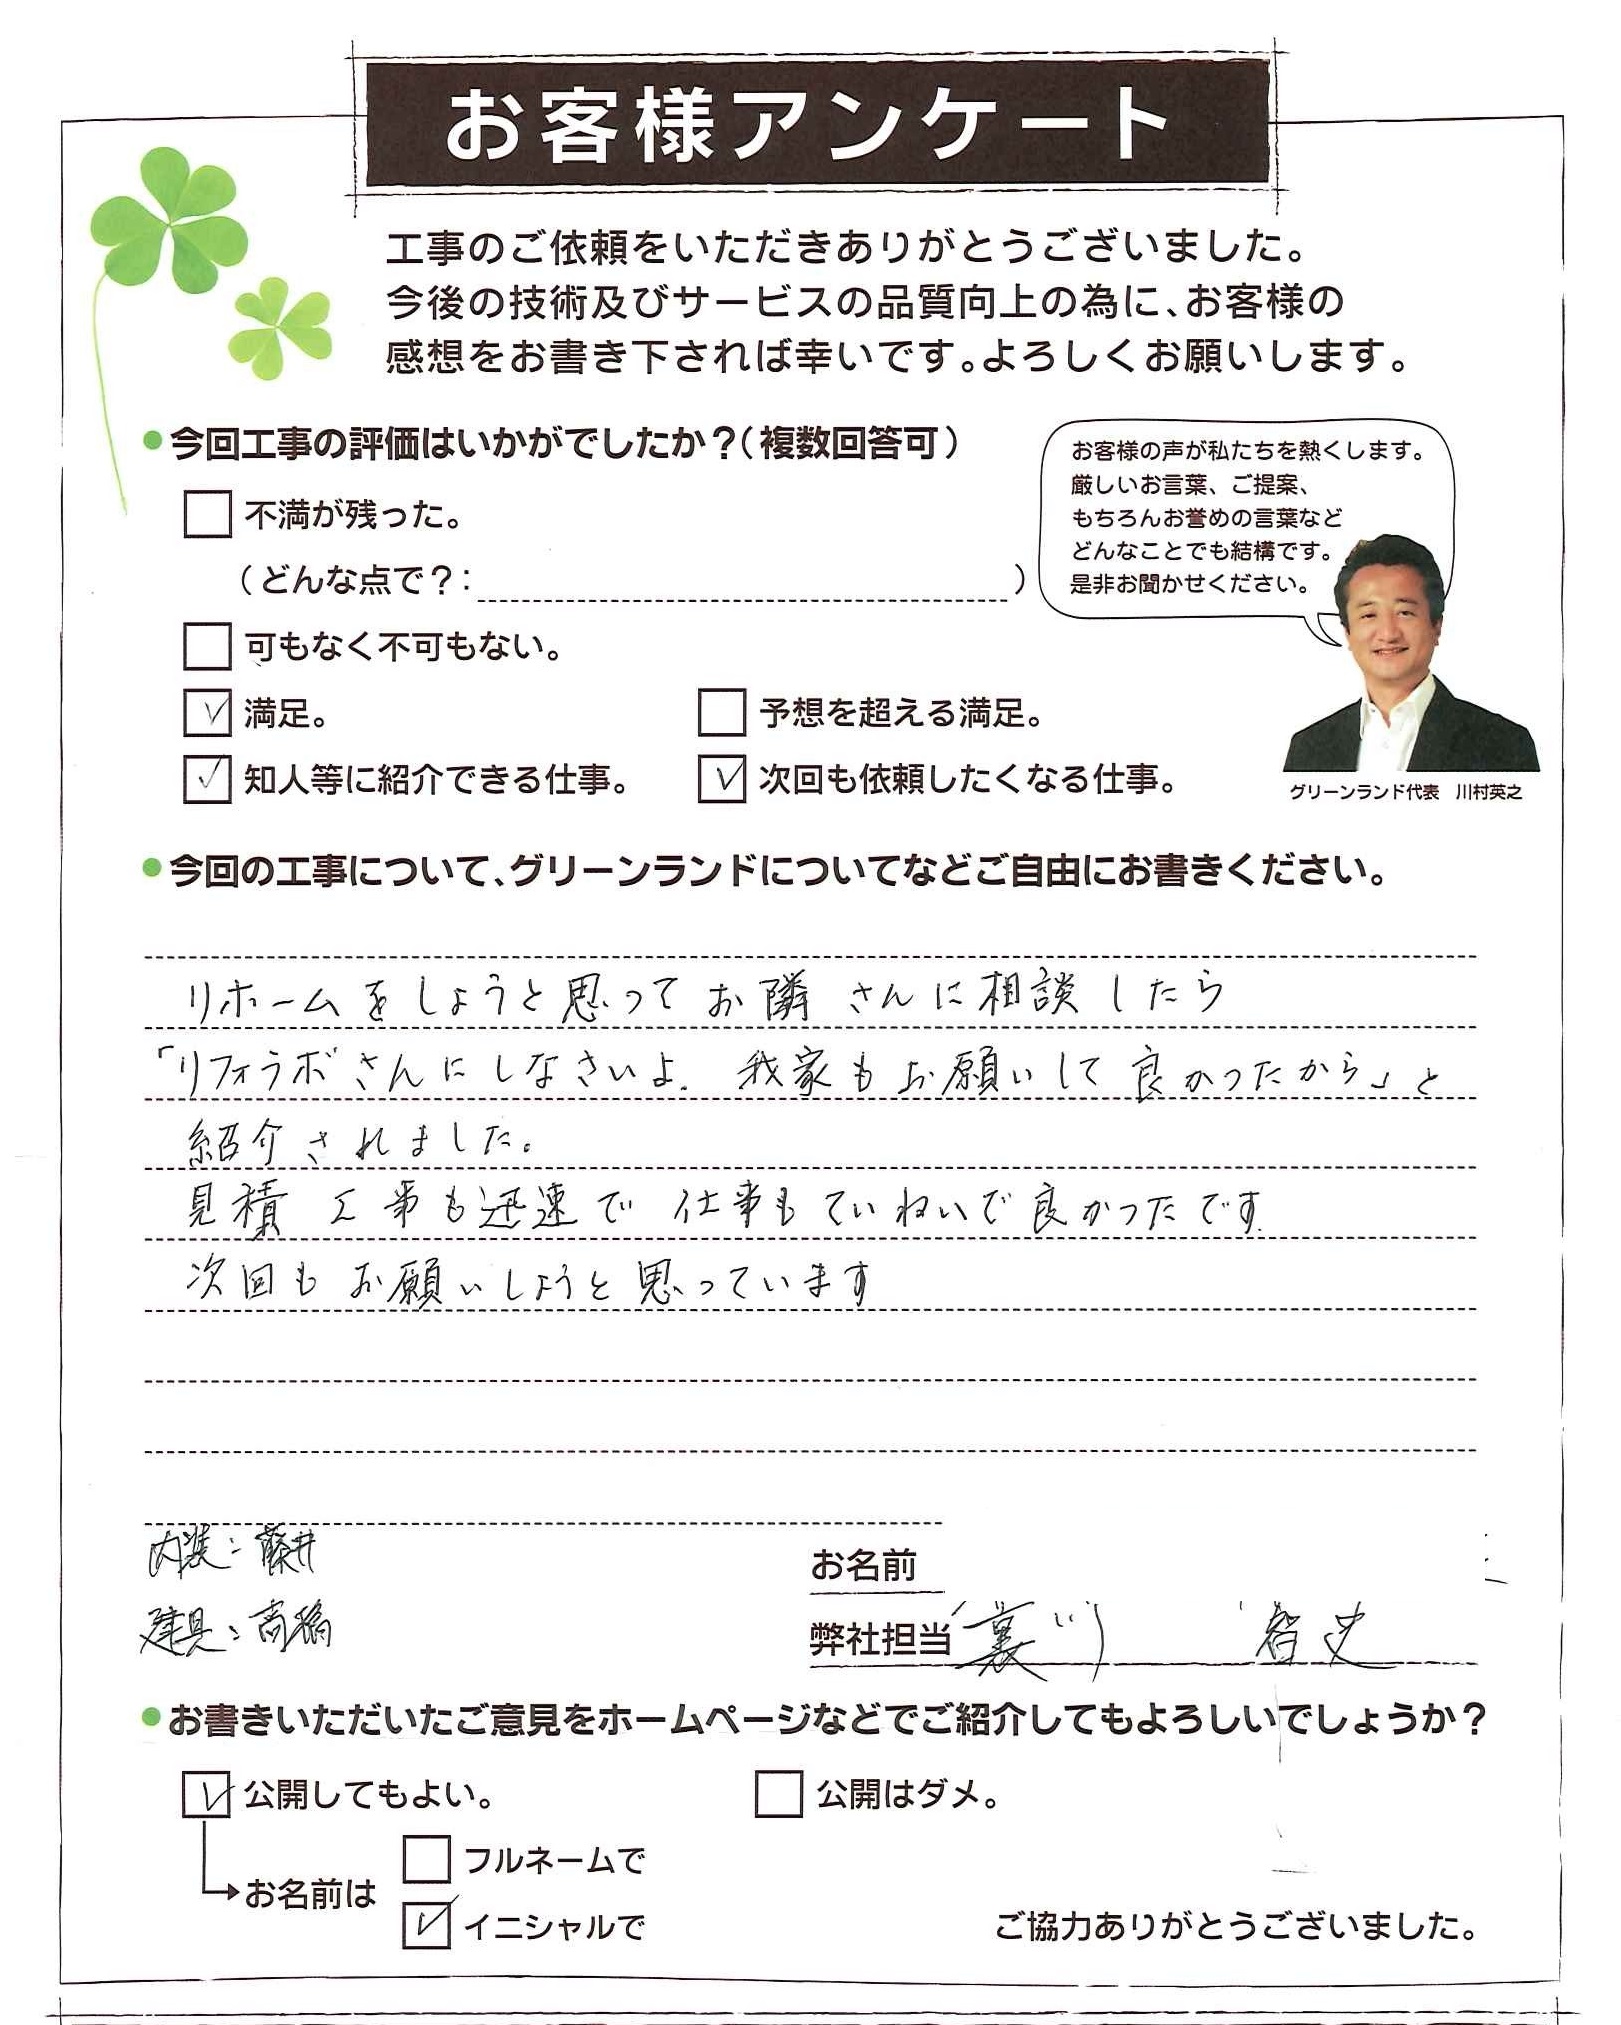 お客様アンケート
工事のご依頼をいただきありがとうございました。
今後の技術及びサービスの品質向上の為に、お客様の
感想をお書き下されば幸いです。よろしくお願いします。
●今回工事の評価はいかがでしたか？（複数回答可）
お客様の声が私たちを熱くします。
厳しいお言葉、ご提案、
もちろんお誉めの言葉など
どんなことでも結構です。
是非お聞かせください。
□ 不満が残った。
（どんな点で？： ）
□ 可もなく不可もない。
☑ 満足。 □ 予想を超える満足。
☑ 知人等に紹介できる仕事。 ☑ 次回も依頼したくなる仕事。
グリーンランド代表 川村英之
●今回の工事について、グリーンランドについてなどご自由にお書きください。
リホームをしようと思ってお隣さんに相談したら
「リフォラボさんにしなさいよ. 我家もお願いして良かったから」と
紹介されました。
見積 工事も迅速で 仕事もていねいで良かったです.
次回もお願いしようと思っています
内装：藤井
建具：高橋
お名前
弊社担当 川 智史
●お書きいただいたご意見をホームページなどでご紹介してもよろしいでしょうか？
☑ 公開してもよい。 □ 公開はダメ。
お名前は
□ フルネームで
☑ イニシャルで
ご協力ありがとうございました。